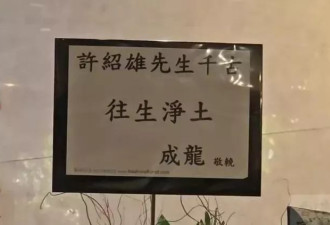 許紹雄先生千古
往生淨土
成龍 敬輓